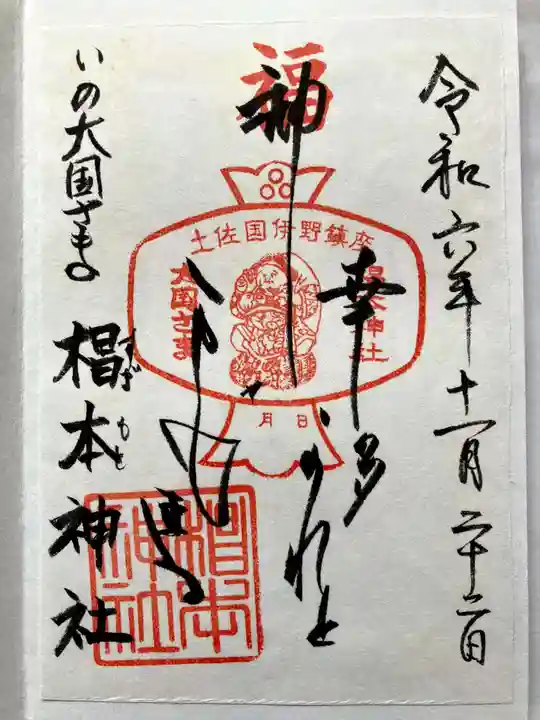 令和六年十一月二十二日
幸多かれと
福
神
土佐国伊野鎮座
椙本神社
大国さま
月日
いの大国さま
椙本神社
すぎもと
椙本神社